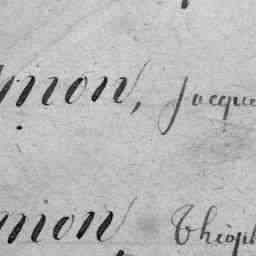 mon, Jacque
mion, Théoph